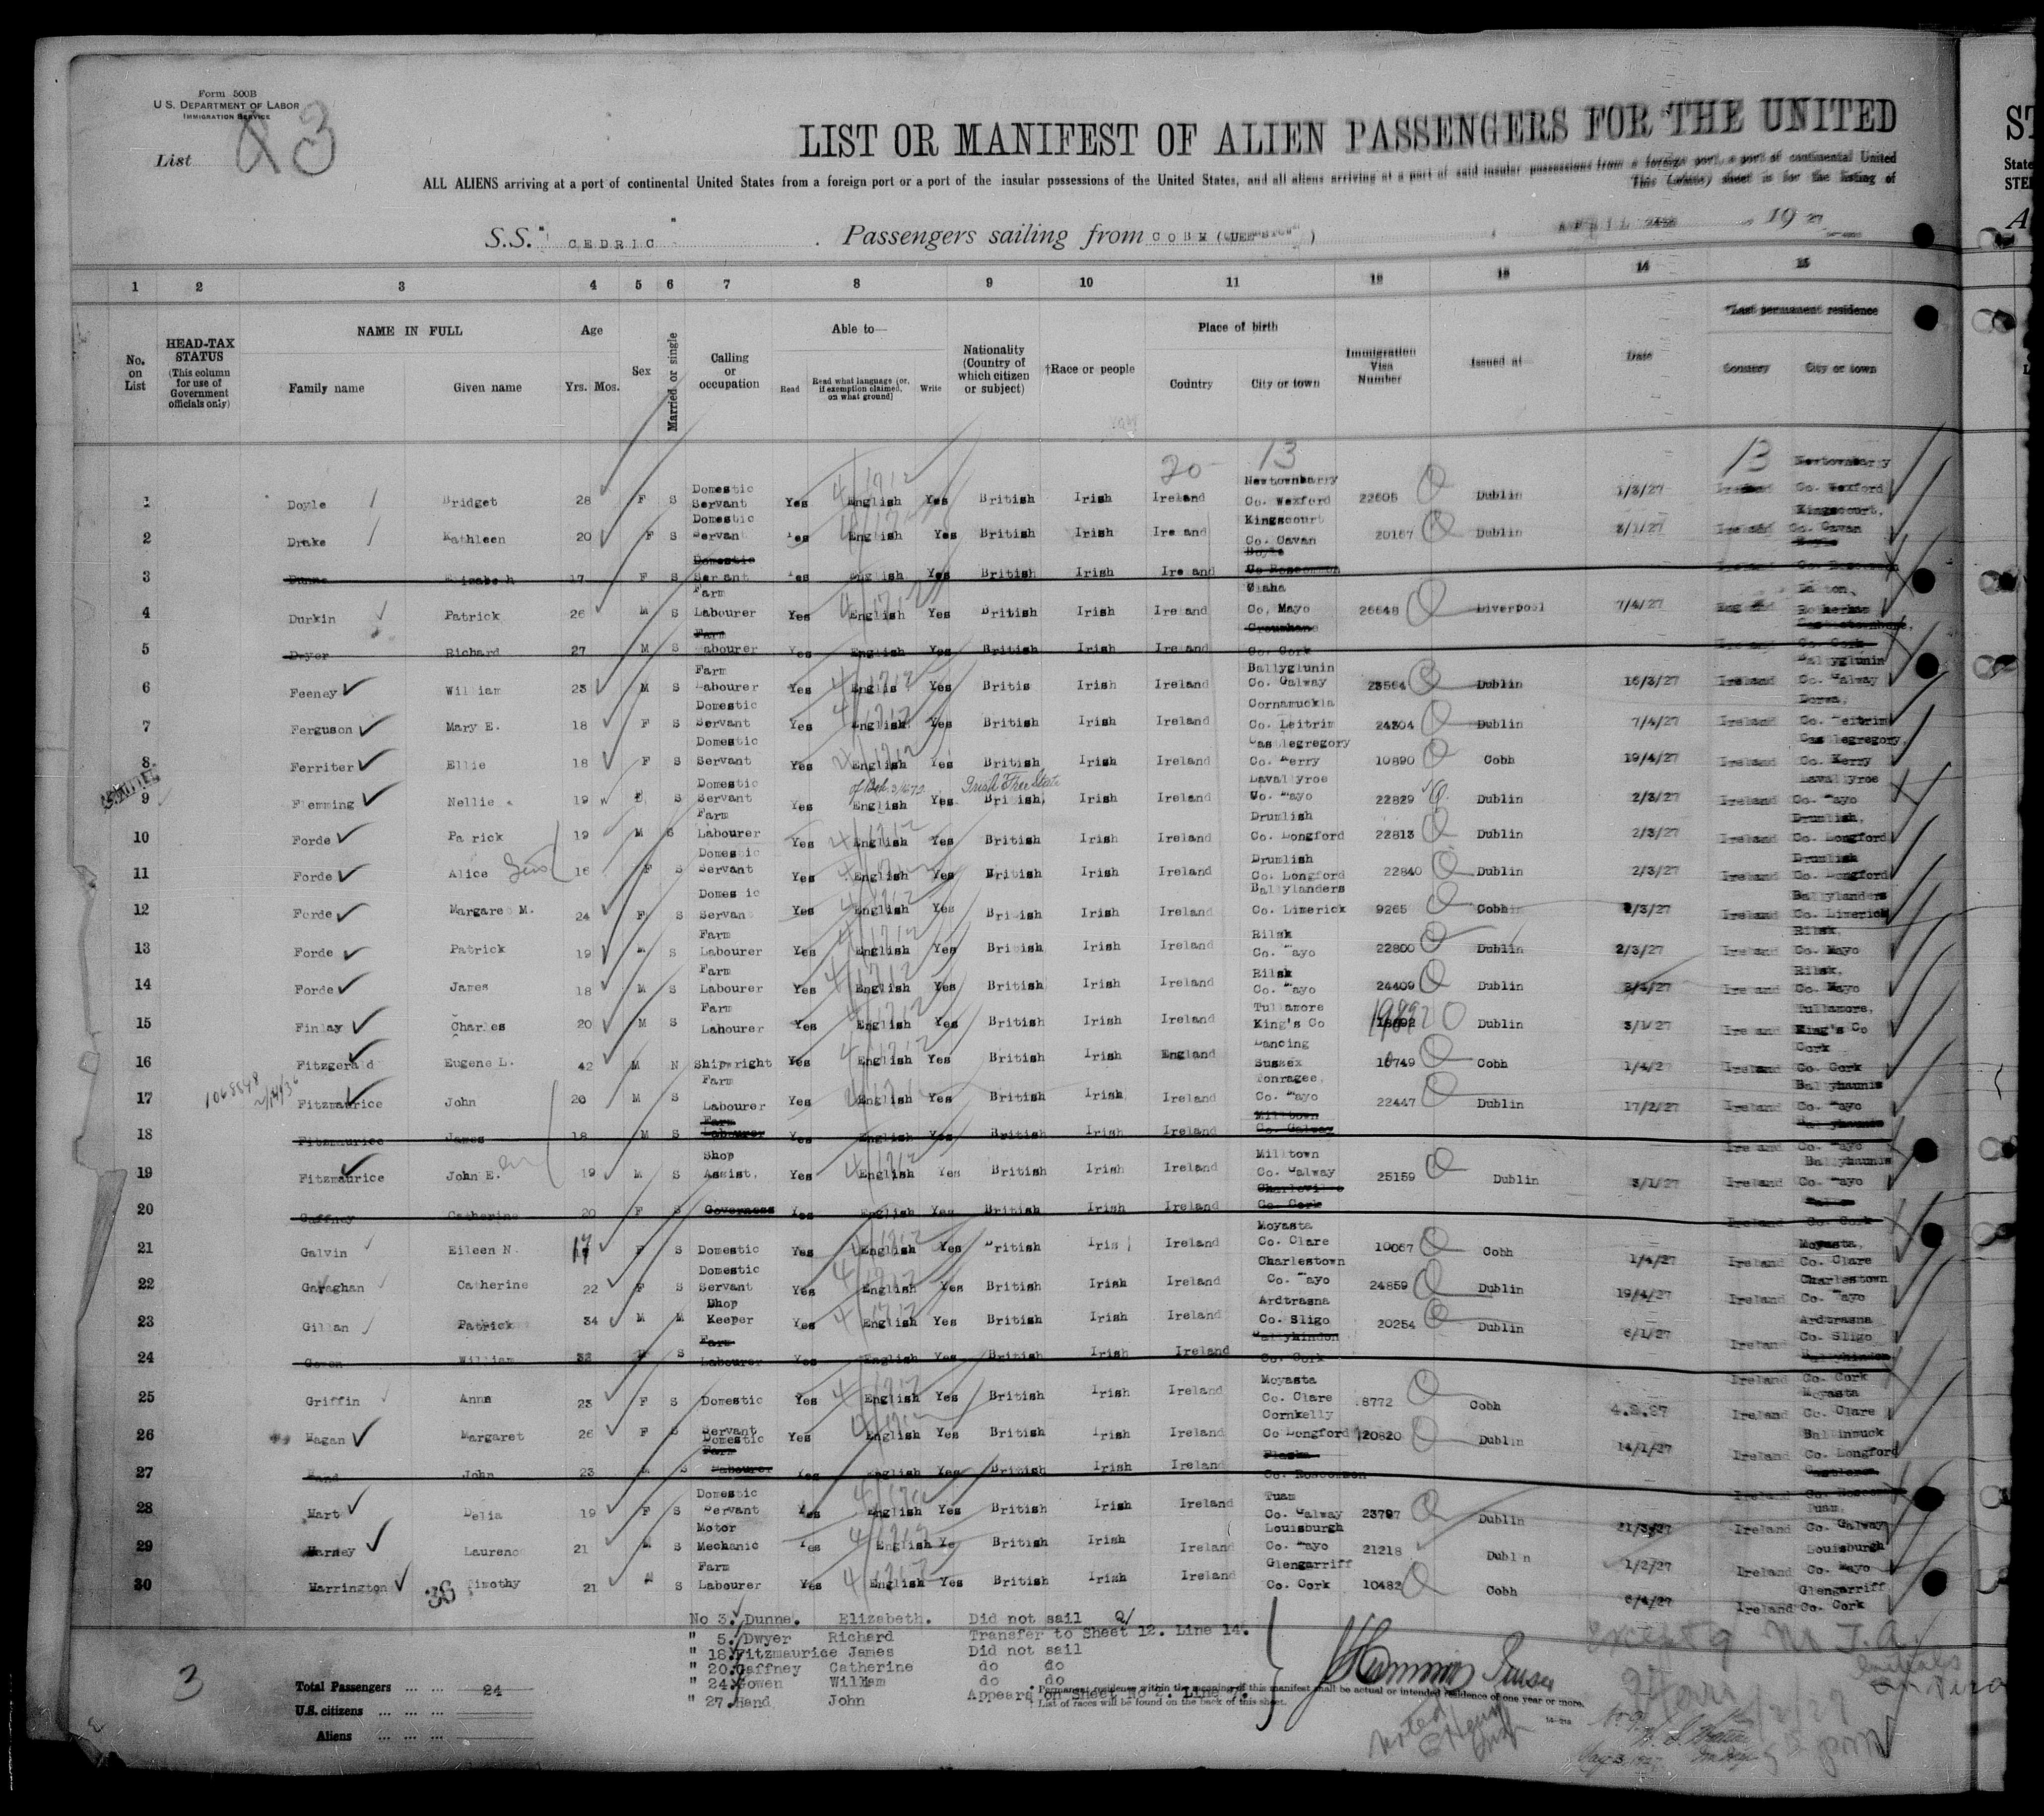 Form 500B
U. S. DEPARTMENT OF LABOR
IMMIGRATION SERVICE
List 3
LIST OR MANIFEST OF ALIEN PASSENGERS FOR THE UNITED
ALL ALIENS arriving at a port of continental United States from a foreign port or a port of the insular possessions of the United States, and all aliens arriving at a port of said insular possessions from a foreign port, a port of continental United
This (white) sheet is for the listing of
S.S. "CEDRIC" Passengers sailing from COBH (QUEENSTOWN) APRIL 19 27
1 2 3 4 5 6 7 8 9 10 11 12 13 14 15
No. on List
HEAD-TAX STATUS (This column for use of Government officials only)
NAME IN FULL Family name Given name
Age Yrs. Mos.
Sex
Married or single
Calling or occupation
Able to— Read Read what language (or, if exemption claimed, on what ground) Write
Nationality (Country of which citizen or subject)
†Race or people
Place of birth Country City or town
Immigration Visa Number
Issued at
Date
*Last permanent residence Country City or town
20 13 13
1 Doyle Bridget 28 F S Domestic Servant Yes English Yes British Irish Ireland Newtownbarry Co. Wexford 22605 Dublin 1/3/27 Ireland Newtownbarry Co. Wexford
2 Drake Kathleen 20 F S Domestic Servant Yes English Yes British Irish Ire and Kingscourt Co. Cavan 20167 Dublin 3/1/27 Ireland Kingscourt, Co. Cavan
3 Dunne Elizabeth 17 F S Domestic Servant Yes English Yes British Irish Ireland Boyle Co Roscommon Ireland Boyle Co. Roscommon
4 Durkin Patrick 26 M S Farm Labourer Yes English Yes British Irish Ireland Co. Mayo 26648 Liverpool 7/4/27 England
5 Dwyer Richard 27 M S Farm Labourer Yes English Yes British Irish Ireland Co. Cork Ireland Co. Cork
6 Feeney William 23 M S Farm Labourer Yes English Yes Britis Irish Ireland Ballyglunin Co. Galway 23564 Dublin 16/3/27 Ireland Ballyglunin Co. Galway
7 Ferguson Mary E. 18 F S Domestic Servant Yes English Yes British Irish Ireland Cornamuckla Co. Leitrim 24304 Dublin 7/4/27 Ireland Co. Leitrim
8 Ferriter Ellie 18 F S Domestic Servant Yes English Yes British Irish Ireland Castlegregory Co. Kerry 10890 Cobh 19/4/27 Ireland Castlegregory, Co. Kerry
9 Flemming Nellie 19 F S Domestic Servant Yes English Yes Irish Free State British Irish Ireland Lavallyroe Co. Mayo 22829 Dublin 2/3/27 Ireland Lavallyroe Co. Mayo
10 Forde Patrick 19 M S Farm Labourer Yes English Yes British Irish Ireland Drumlish Co. Longford 22813 Dublin 2/3/27 Ireland Drumlish, Co. Longford
11 Forde Alice 16 F S Domestic Servant Yes English Yes British Irish Ireland Drumlish Co. Longford 22840 Dublin 2/3/27 Ireland Drumlish Co. Longford
12 Forde Margaret M. 24 F S Domestic Servant Yes English Yes British Irish Ireland Ballylanders Co. Limerick 9265 Cobh 2/3/27 Ireland Ballylanders Co. Limerick
13 Forde Patrick 19 M S Farm Labourer Yes English Yes British Irish Ireland Rilsk Co. Mayo 22800 Dublin 2/3/27 Ireland Rilsk, Co. Mayo
14 Forde James 18 M S Farm Labourer Yes English Yes British Irish Ireland Rilsk Co. Mayo 24409 Dublin Ireland Rilsk, Co. Mayo
15 Finlay Charles 20 M S Farm Labourer Yes English Yes British Irish Ireland Tullamore King's Co 19892 Dublin 3/1/27 Ireland Tullamore, King's Co
16 Fitzgerald Eugene L. 42 M N Shipwright Yes English Yes British Irish England Lancing Sussex 10749 Cobh 1/4/2 Ireland Cork Co. Cork
17 Fitzmaurice John 20 M S Farm Labourer Yes English Yes British Irish Ireland Tonragee, Co. Mayo 22447 Dublin 17/2/27 Ireland Ballyhaunis Co. Mayo
18 Fitzmaurice James 18 M S Farm Labourer Yes English Yes British Irish Ireland Milltown Co. Galway Ireland Ballyhaunis Co. Mayo
19 Fitzmaurice John E. 19 M S Shop Assist. Yes English Yes British Irish Ireland Milltown Co. Galway 25159 Dublin 3/1/27 Ireland Ballyhaunis Co. Mayo
20 Gaffney Catherine 20 F S Governess Yes English Yes British Irish Ireland Charleville Co. Cork Ireland Co. Cork
21 Galvin Eileen N. 17 F S Domestic Yes English Yes British Irish Ireland Moyasta Co. Clare 10067 Cobh 1/4/27 Ireland Moyasta, Co. Clare
22 Garaghan Catherine 22 F S Domestic Servant Yes English Yes British Irish Ireland Charlestown Co. Mayo 24859 Dublin 19/4/27 Ireland Charlestown Co. Mayo
23 Gillan Patrick 34 M M Shop Keeper Yes English Yes British Irish Ireland Ardtrasna Co. Sligo 20254 Dublin 6/1/27 Ireland Ardtrasna Co. Sligo
24 Gowen William 32 M S Farm Labourer Yes English Yes British Irish Ireland Ballyhindon Co. Cork Ireland Ballyhindon Co. Cork
25 Griffin Anna 23 F S Domestic Yes English Yes British Irish Ireland Moyasta Co. Clare 8772 Cobh Ireland Moyasta Co. Clare
26 Hagan Margaret 26 F S Servant Domestic Yes English Yes British Irish Ireland Cornkelly Co Longford 20820 Dublin 14/1/27 Ireland Ballinmuck Co. Longford
27 Hand John 23 M S Farm Labourer Yes English Yes British Irish Ireland Co. Roscommon Ireland Castlerea Co. Roscommon
28 Hart Delia 19 F S Domestic Servant Yes English Yes British Irish Ireland Tuam Co. Galway 23797 Dublin 21/3/27 Ireland Tuam, Co. Galway
29 Harney Laurence 21 M S Motor Mechanic Yes English Ye British Irish Ireland Louisburgh Co. Mayo 21218 Dublin 1/2/27 Ireland Louisburgh Co. Mayo
30 Harrington Timothy 21 M S Farm Labourer Yes English Yes British Irish Ireland Glengarriff Co. Cork 10482 Cobh 6/4/27 Ireland Glengarriff Co. Cork
No 3. Dunne. Elizabeth. Did not sail
" 5. Dwyer Richard Transfer to Sheet 12. Line 14.
" 18. Fitzmaurice James Did not sail
" 20. Gaffney Catherine do do
" 24. Gowen William do do
" 27. Hand John Appears on Sheet No 2. Line 7.
3
Total Passengers 24
U.S. citizens
Aliens
* Permanent residence within the meaning of this manifest shall be actual or intended residence of one year or more.
† List of races will be found on the back of this sheet.